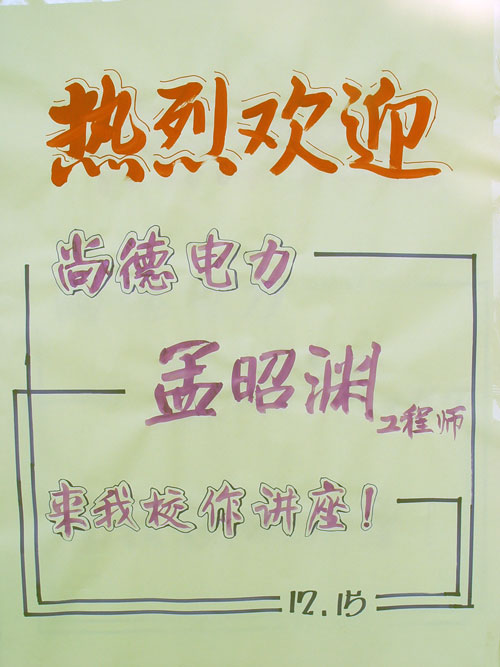 热烈欢迎
尚德电力
孟昭渊
工程师
来我校作讲座！
12.15